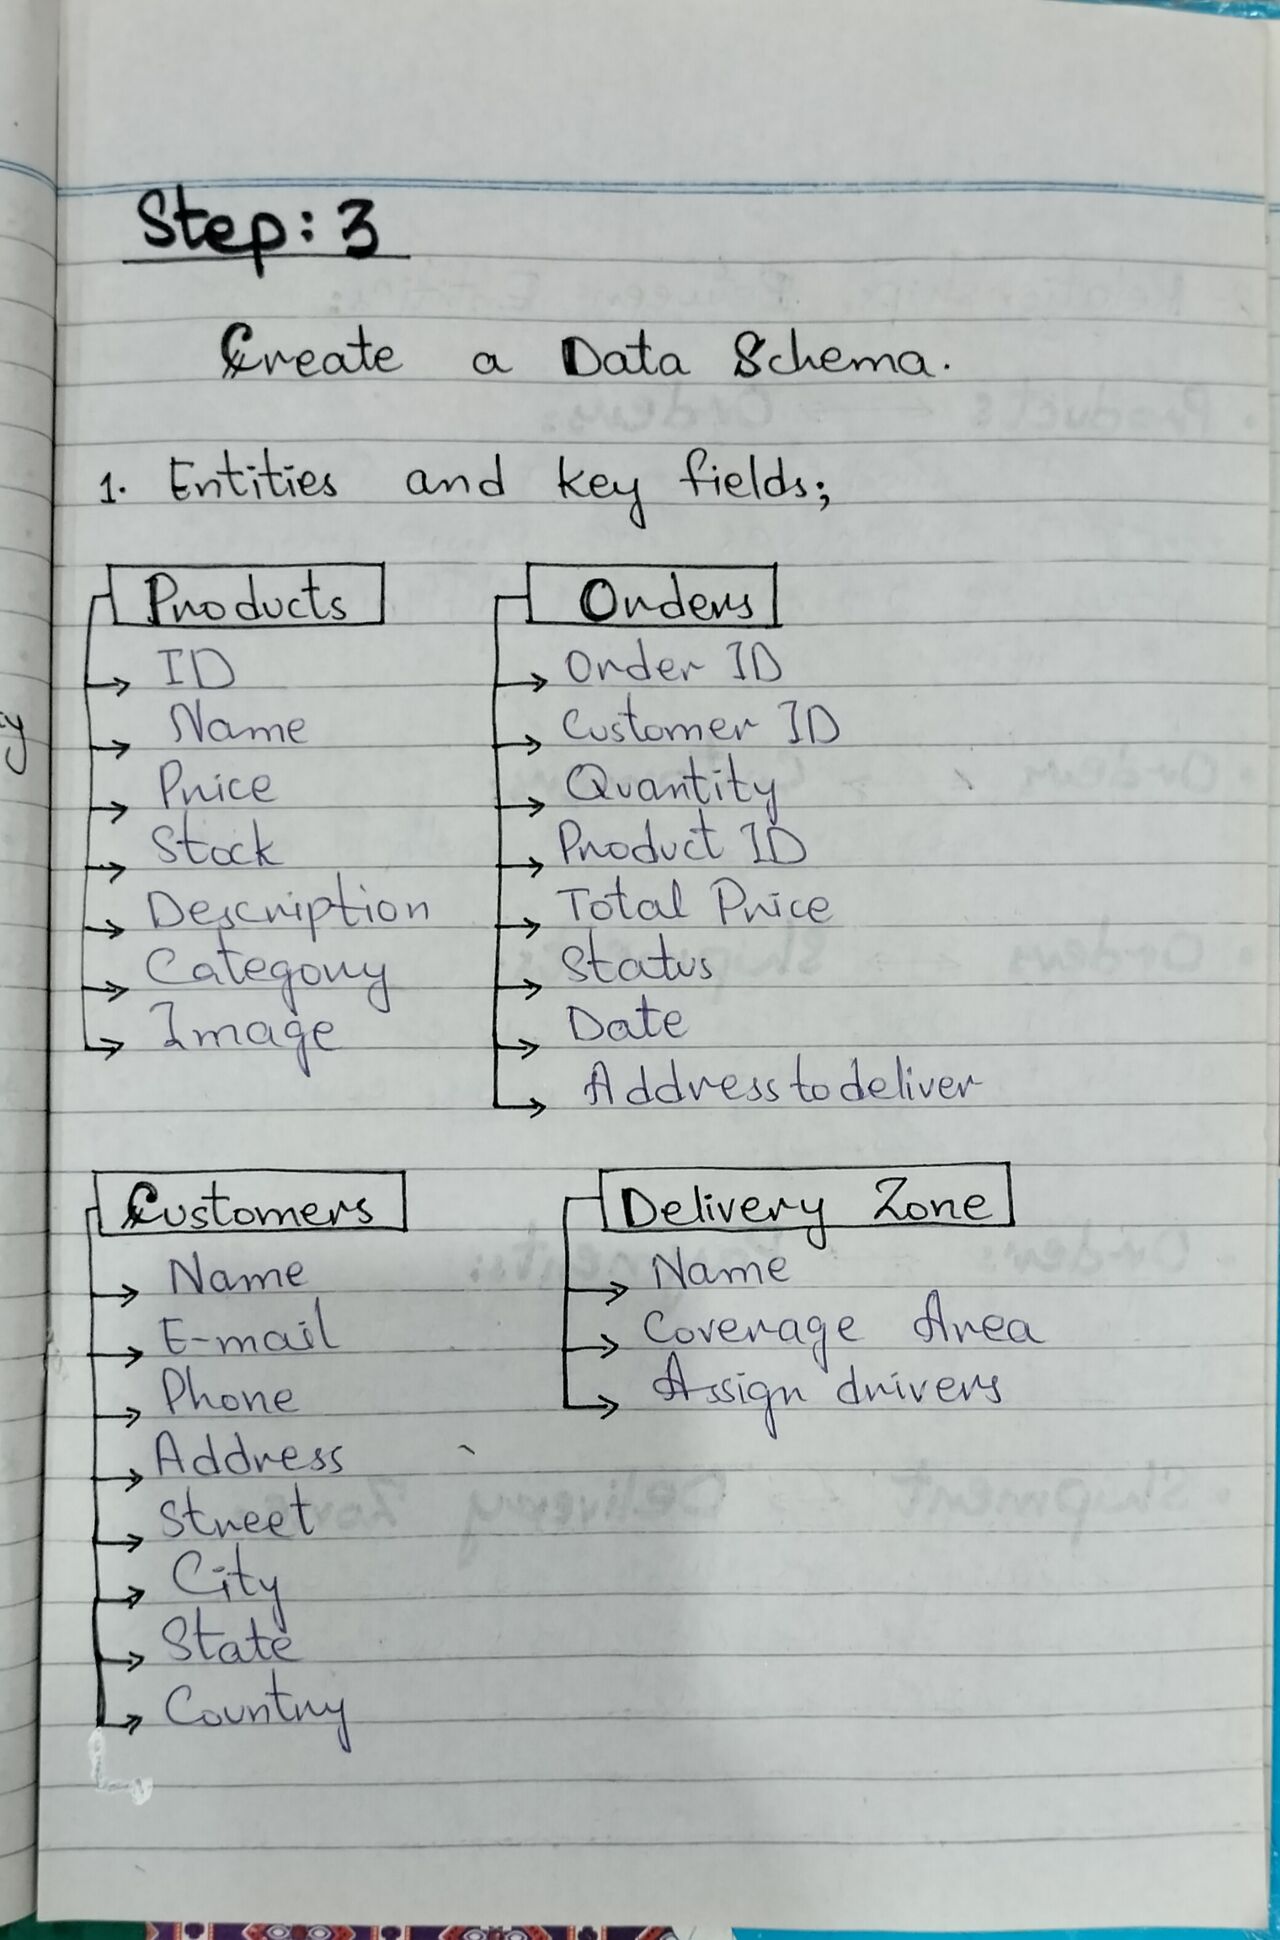 Step: 3
Create a Data Schema.
1. Entities and key fields;
Products
ID
Name
Price
Stock
Description
Category
Image
Orders
Order ID
Customer ID
Quantity
Product ID
Total Price
Status
Date
Address to deliver
Customers
Name
E-mail
Phone
Address
Street
City
State
Country
Delivery Zone
Name
Coverage Area
Assign drivers